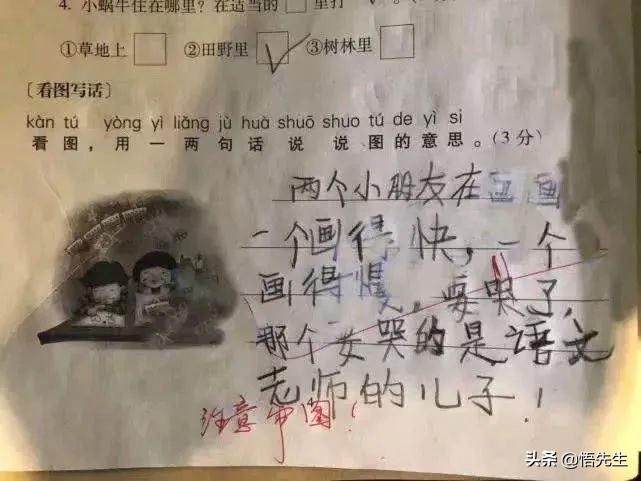 4. 小蜗牛住在哪里?在适当的□里打 ✓。
①草地上 □ ②田野里 ☑ ③树林里 □
〔看图写话〕
kàn tú yòng yì liǎng jù huà shuō shuo tú de yì si
看图,用一两句话说说图的意思。(3分)
两个小朋友在画画
一个画得快,一个
画得慢,要哭了,
那个要哭的是语文
老师的儿子!
注意审图!
头条 @悟先生